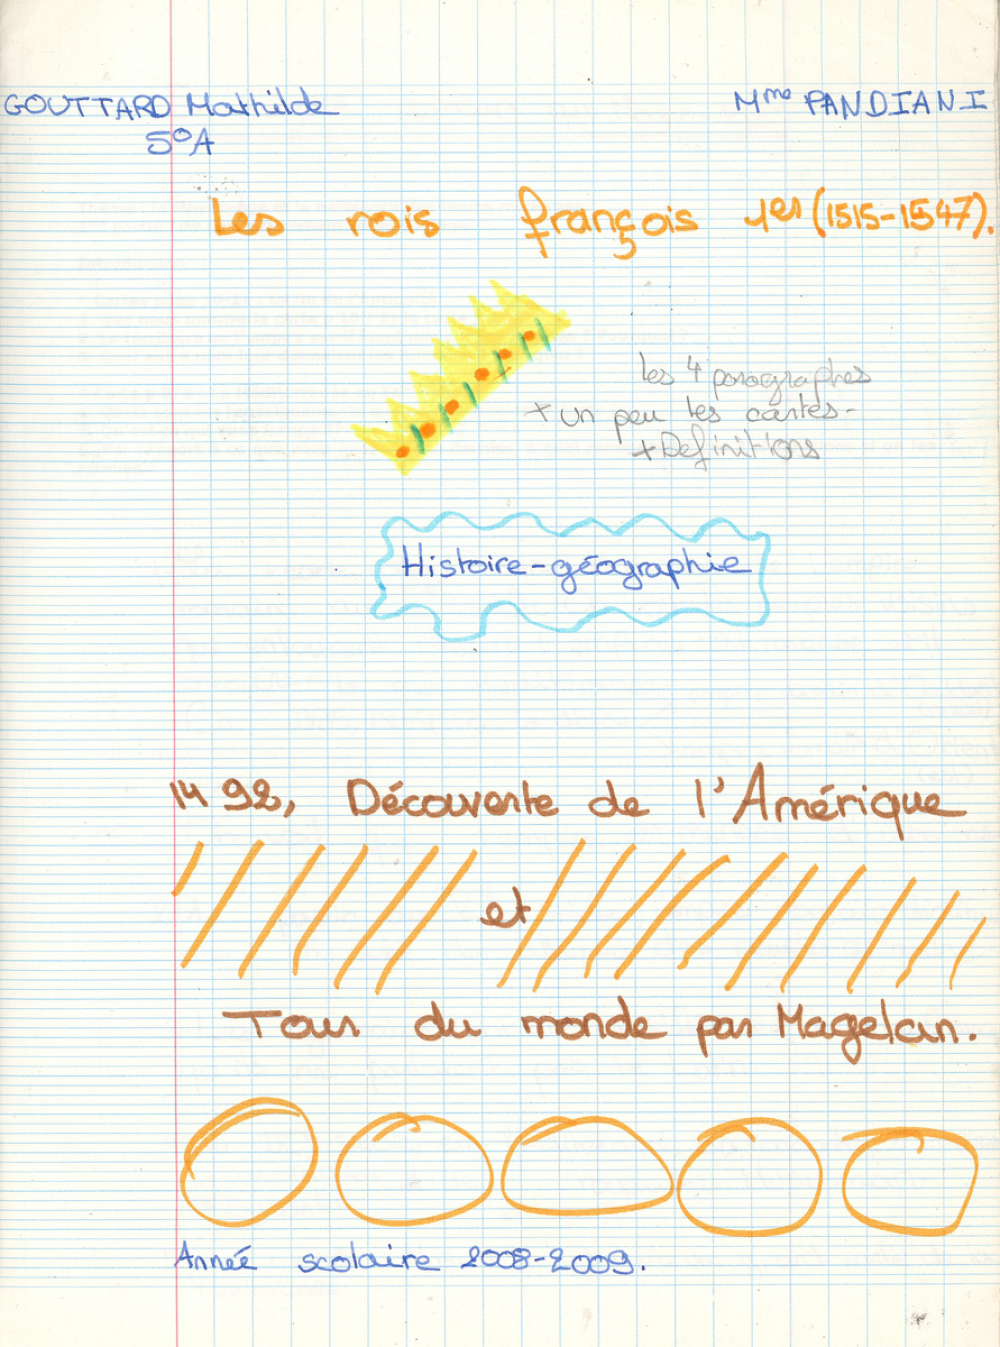 GOUTTARD Mathilde
Mme PANDIANI
5°A
Les rois françois 1er (1515-1547).
les 4 paragraphes
+ un peu les cartes-
+ Definitions
Histoire-géographie
1492, Découverte de l'Amérique
et
Tour du monde par Magelan.
Année scolaire 2008-2009.